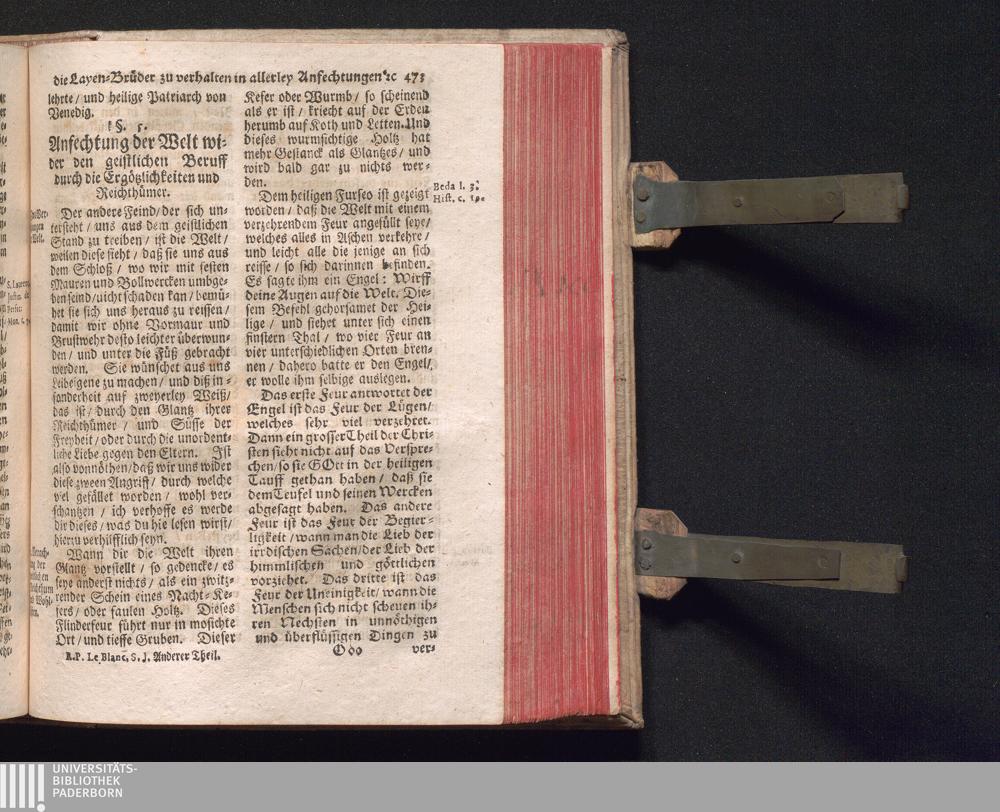 die Layen-Brüder zu verhalten in allerley Anfechtungen ꝛc 473
lehrte / und heilige Patriarch von
Venedig.
§. 5.
Anfechtung der Welt wi-
der den geistlichen Beruff
durch die Ergötzlichkeiten und
Reichthümer.
Der andere Feind / der sich un-
tersteht / uns aus dem geistlichen
Stand zu treiben / ist die Welt /
weilen diese sieht / daß sie uns aus
dem Schloß / wo wir mit festen
Mauren und Bollwercken umbge-
ben seind / nicht schaden kan / bemü-
het sie sich uns heraus zu reissen /
damit wir ohne Vormaur und
Brustwehr desto leichter überwun-
den / und unter die Füß gebracht
werden. Sie wünschet aus uns
Leibeigene zu machen / und diß in-
sonderheit auf zweyerley Weiß /
das ist / durch den Glantz ihrer
Reichthümer / und Süsse der
Freyheit / oder durch die unordent-
liche Liebe gegen den Eltern. Ist
also vonnöthen / daß wir uns wider
diese zween Angriff / durch welche
vil gefället worden / wohl ver-
schantzen / ich verhoffe es werde
dir dieses / was du hie lesen wirst /
hierzu verhilfflich seyn.
Wann dir die Welt ihren
Glantz vorstellt / so gedencke / es
seye anderst nichts / als ein zwitz-
render Schein eines Nacht-Ke-
fers / oder faulen Holtz. Dieses
Flinderfeur führt nur in mosichte
Ort / und tieffe Gruben. Dieser
R.P. Le Blanc, S. J. Anderer Theil.
Kefer oder Wurmb / so scheinend
als er ist / kriecht auf der Erden
herumb auf Koth und Letten. Und
dieses wurmsichtige Holtz hat
mehr Gestanck als Glantzes / und
wird bald gar zu nichts wer-
den.
Dem heiligen Furseo ist gezeigt
worden / daß die Welt mit einem
verzehrendem Feur angefüllt seye /
welches alles in Aschen verkehre /
und leicht alle die jenige an sich
reisse / so sich darinnen befinden.
Es sagte ihm ein Engel: Wirff
deine Augen auf die Welt. Die-
sem Befehl gehorsamet der Hei-
lige / und siehet unter sich einen
finstern Thal / wo vier Feur an
vier unterschiedlichen Orten bren-
nen / dahero batte er den Engel /
er wolle ihm selbige auslegen.
Das erste Feur antwortet der
Engel ist das Feur der Lügen /
welches sehr viel verzehret.
Dann ein grosser Theil der Chri-
sten sieht nicht auf das Verspre-
chen / so sie GOtt in der heiligen
Tauff gethan haben / daß sie
dem Teufel und seinen Wercken
abgesagt haben. Das andere
Feur ist das Feur der Begier-
ligkeit / wann man die Lieb der
irrdischen Sachen / der Lieb der
himmlischen und göttlichen
vorziehet. Das dritte ist das
Feur der Uneinigkeit / wann die
Menschen sich nicht scheuen ih-
ren Nechsten in unnöthigen
und überflüssigen Dingen zu
Ooo ver-
Beda l. 3.
Hist. c. 19.
UNIVERSITÄTS-
BIBLIOTHEK
PADERBORN